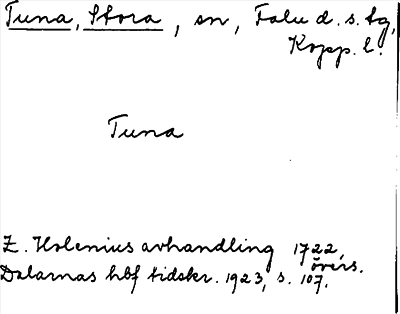 Tuna, Stora, sn, Falu d. s. tg,
Kopp. l.
Tuna
Z. Holenius avhandling 1722,
övers.
Dalarnas hbf tidskr. 1923, s. 107.